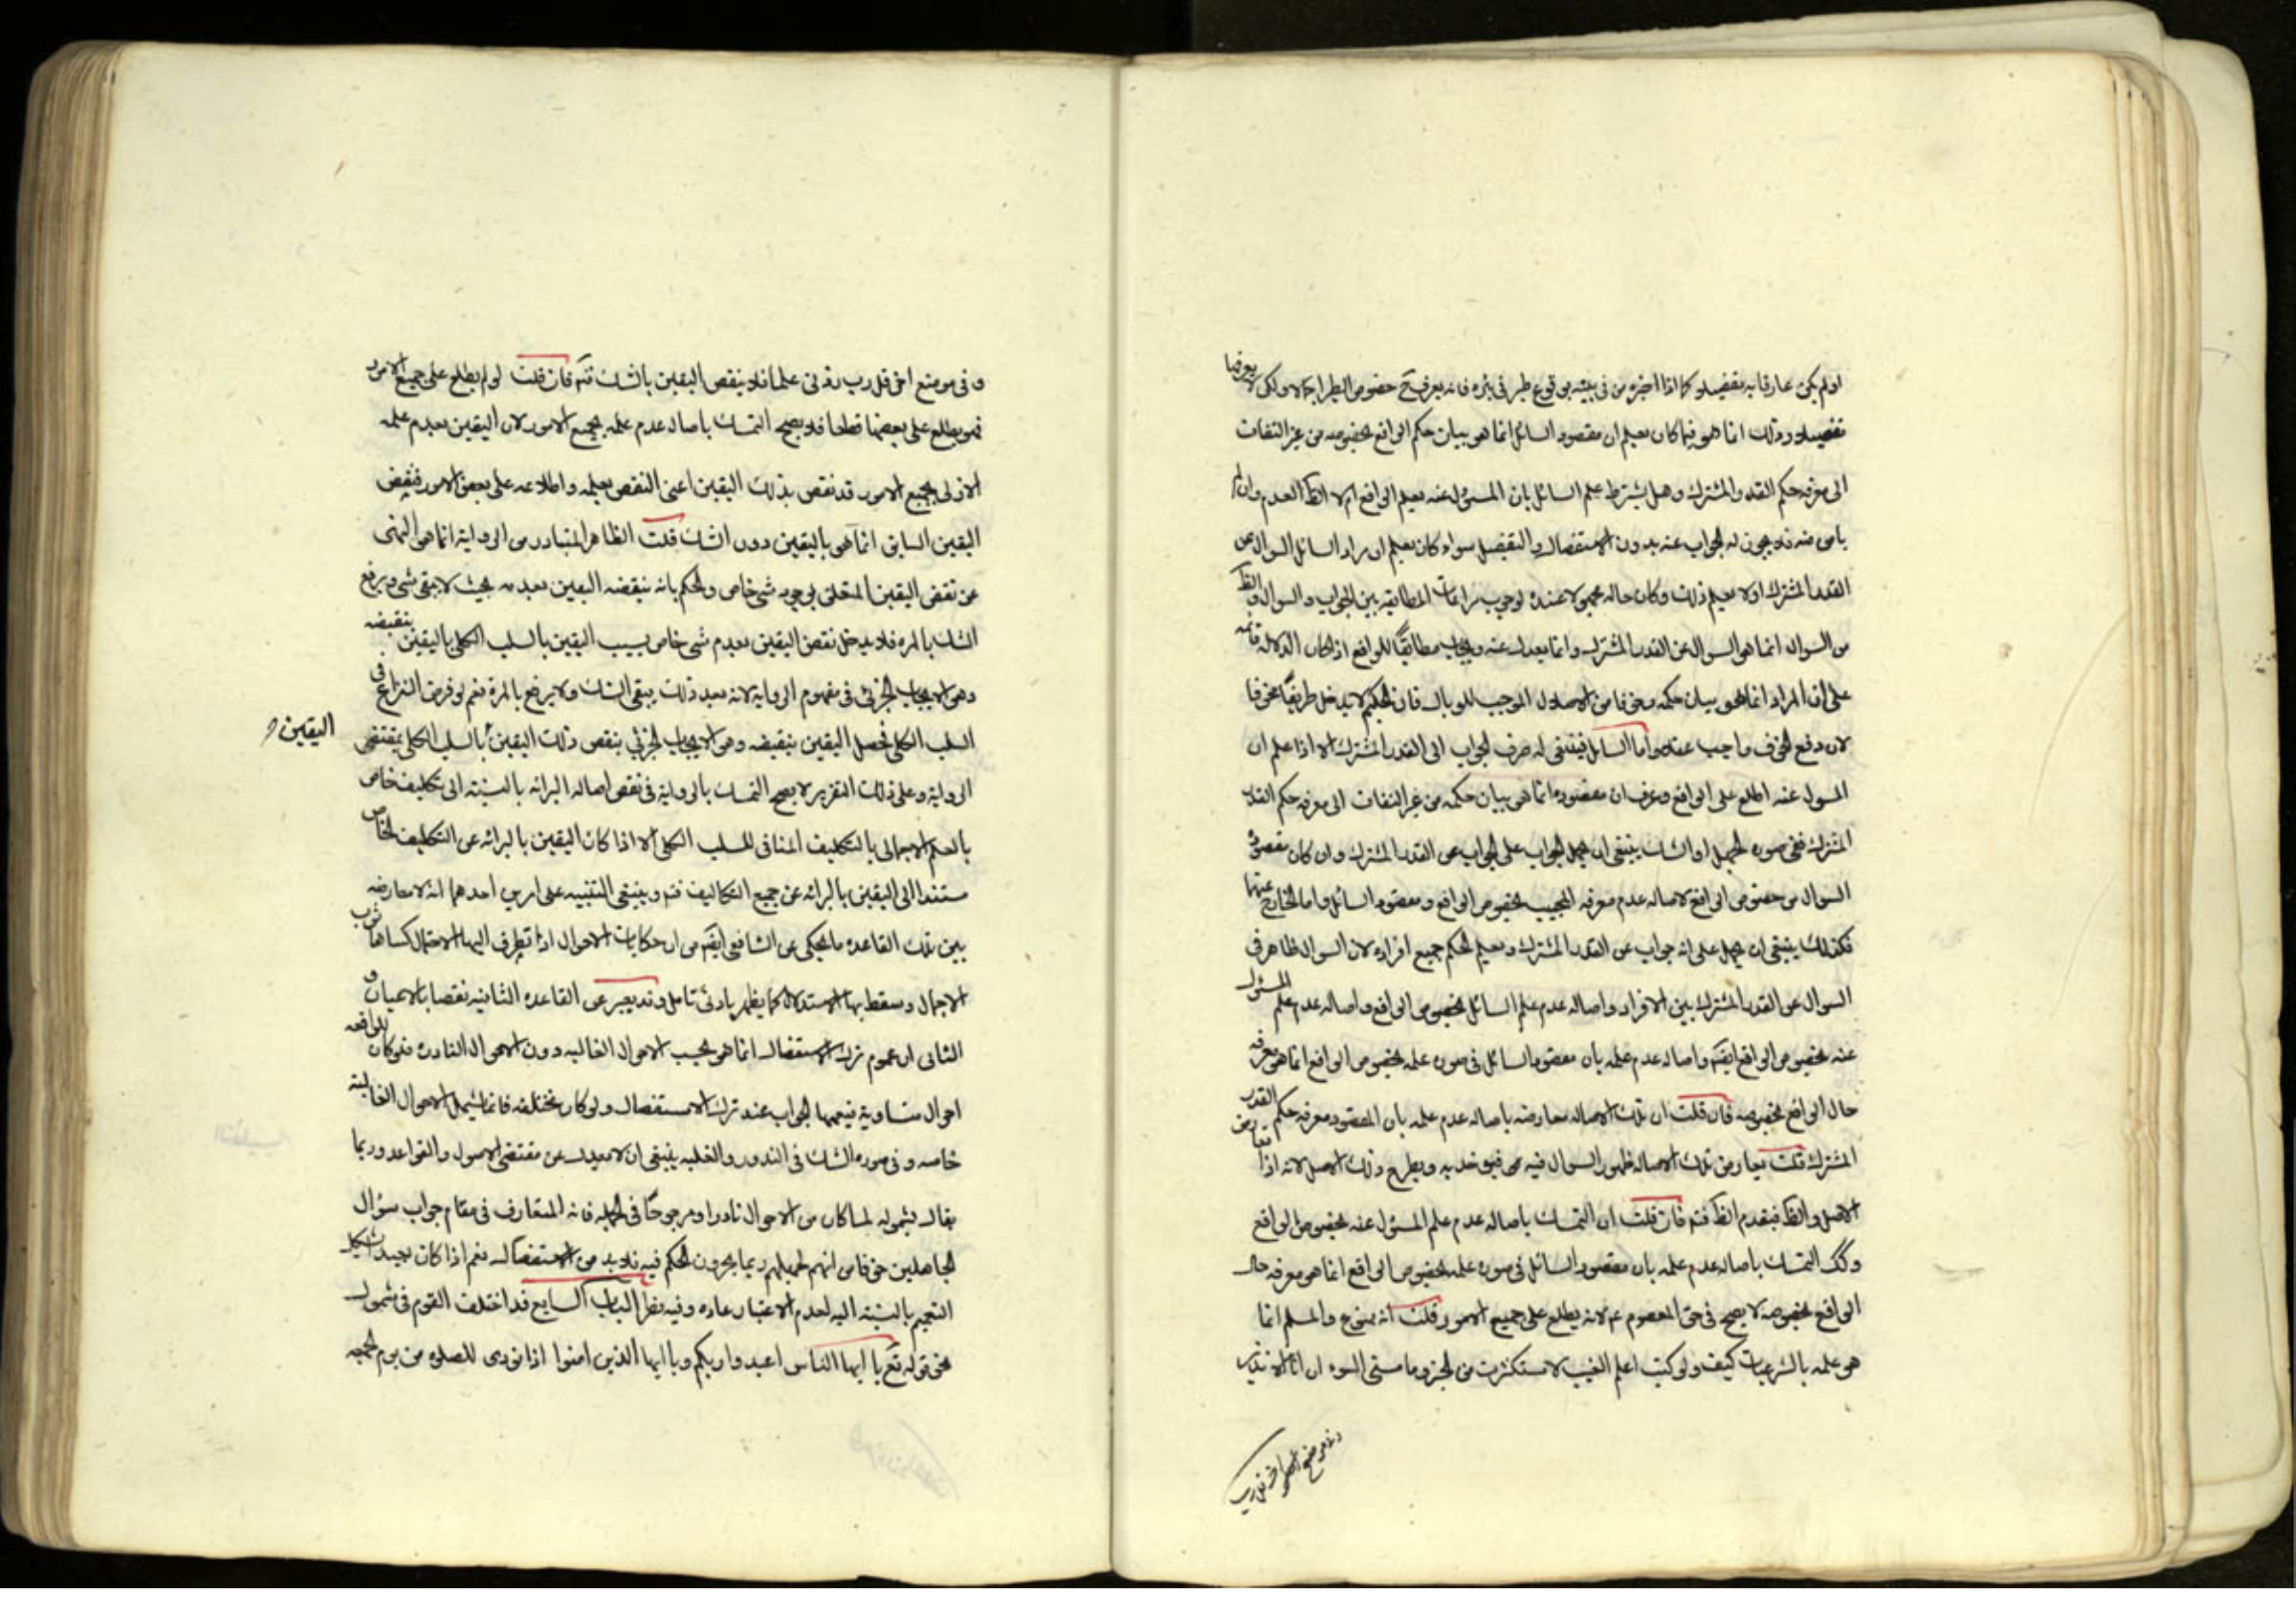 اولم يكن عارفا به بتفضيله كما اذا اخبره من في بيته بوقوع طير في بئره فانه يعرف ح خصوص الطير اجمالا ولكن لا يعرفها
تفصيلا وذلك انما هو فيما كان يعلم ان مقصود السائل انما هو بيان حكم الواقع بخصوصه من غير التفات
الى معرفه حكم القدر المشترك وهل يشترط علم السائل بان المسئول عنه يعلم الواقع ام لا الظ العدم وان لم
يامن منه فلا يجوز له الجواب عنه بدون الاستفصال والتفصيل سواء كان يعلم ان مراد السائل السوال عن
القدر المشترك اولا يعلم ذلك وكان حاله مجهولا عنده لوجوب مراعات المطابقه بين الجواب والسوال والظ
من السوال انما هو السوال عن القدر المشترك وانما يعدل عنه ويجاب مطابقًا للواقع اذا كان الدلاله قائمه
على ان المراد انما هو بيان حكمه وخوفا من الاضلال الموجب للوبال فان الحكيم لا يدخل طريقًا مخوفا
لان دفع الخوف واجب عقلا واما السائل فينبغى له صرف الجواب الى القدر المشترك الا اذا علم ان
المسول عنه اطلع على الواقع وعرف ان مقصوده انما هى بيان حكمه من غير التفات الى معرفه حكم القدر
المشترك ففى صوره الجهل او الشك ينبغى ان يحمل الجواب على الجواب عن القدر المشترك وان كان مقصوده
السوال من خصوص الواقع لاصاله عدم معرفه المجيب بخصوص الواقع ومقصود السائل واما الخارج عنها
فكذلك ينبغى ان يحمل على انه جواب عن القدر المشترك ويعلم الحكم جميع افراده لان السوال ظاهر فى
السوال عن القدر المشترك بين الافراد واصاله عدم علم السائل بخصوص الواقع واصاله عدم علم المسئول
عنه بخصوص الواقع ايضًا واصاله عدم علمه بان مقصود السائل فى صوره علمه بخصوص الواقع انما هو معرفه
حال الواقع بخصوصه فان قلت ان تلك الاصاله معارضه باصاله عدم علمه بان المقصود معرفه حكم القدر
المشترك قلت يعارض تلك الاصاله ظهور السوال فيه فيوخذ به ويطرح ذلك الاصل لانه اذا تعارض
الاصل والظ فيقدم الظ فتم فان قلت ان التمسك باصاله عدم علم المسئول عنه بخصوص الواقع
وكك التمسك باصاله عدم علمه بان مقصود السائل فى صوره علمه بخصوص الواقع انما هو معرفه حال
الواقع بخصوصه لا يصح فى حق المعصوم ع لانه يطلع على جميع الامور قلت انه ممنوع والمسلم انما
هو علمه بالشرعيات كيف ولو كنت اعلم الغيب لاستكثرت من الخير وما مسنى السوء ان انا الا نذير
وفى موضع اخر قل رب
وفى موضع اخر قل رب زدنى علما فلا ينقض اليقين بالشك فتم فان قلت لو لم يطلع على جميع الامور
فهو يطلع على بعضها قطعا فلا يصح التمسك باصاله عدم علمه بجميع الامور لان اليقين بعدم علمه
الازلى بجميع الامور قد نقض بذلك اليقين اعنى النقض بعلمه واطلاعه على بعض الامور فنقض
اليقين السابق انما هو باليقين دون الشك قلت الظاهر المتبادر من الروايه انما هى النهى
عن نقض اليقين المتعلق بوجود شى خاص والحكم بانه ينقضه اليقين بعدمه بحيث لا يبقى شى ويرفع
الشك بالمره فلا يدخل نقض اليقين بعدم شى خاص بسبب اليقين بالسلب الكلى باليقين بنقيضه
وهو الايجاب الجزئى فى مفهوم الروايه لانه بعد ذلك يبقى الشك ولا يرفع بالمره نعم لو فرض النزاع فى
السلب الكلى فحصل اليقين بنقيضه وهو الايجاب الجزئى ينقض ذلك اليقين بالسلب الكلى بمقتضى
اليقين
الروايه وعلى ذلك التقرير لا يصح التمسك بالروايه فى نقض اصاله البرائه بالنسبه الى تكليف خاص
بالعلم الاجمالى بالتكليف المنافى للسلب الكلى الا اذا كان اليقين بالبرائه عن التكليف الخاص
مستندا الى اليقين بالبرائه عن جميع التكاليف فتم وينبغى التنبيه على امرين احدهما انه لا معارضه
بين تلك القاعده ما يحكى عن الشافعى ايضًا من ان حكايات الاحوال اذا تطرق اليها الاحتمال كساها ثوب
الاجمال وسقط بها الاستدلال كما يظهر بادنى تامل وقد يعبر عن القاعده الثانيه بقضايا الاعيان و
الثانى ان عموم ترك الاستفصال انما هو بحسب الاحوال الغالبه دون الاحوال النادره فلو كان للواقعه
احوال متساويه فيعمها الجواب عند ترك الاستفصال ولو كان مختلفه فانما يشمل الاحوال الغالبه
خاصه وفى صوره الشك فى الندور والغلبه ينبغى ان لا يعدل عن مقتضى الاصول والقواعد وربما
يقال بشموله لما كان من الاحوال نادرا او مرجوحًا فى الجمله فانه المتعارف فى مقام جواب سؤال
الجاهلين خوفا من انهم لجهلهم ربما يجرون الحكم فيه فلا بد من الاستفصال نعم اذا كان بعيد اشكل
التعميم بالنسبه اليه لعدم الاعتبار عاده وفيه نظر الباب السابع قد اختلف القوم فى شمول
نحو قوله تع يا ايها الناس اعبدوا ربكم ويا ايها الذين امنوا اذا نودى للصلوه من يوم الجمعه